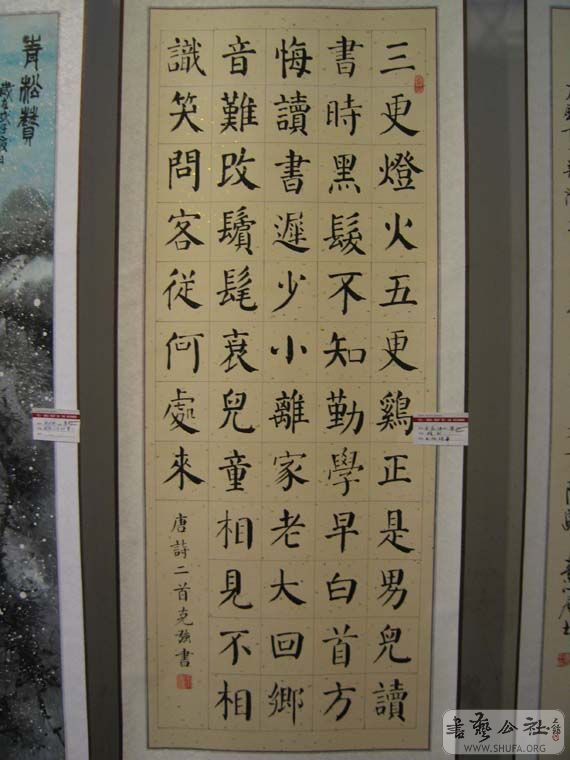 三更燈火五更鷄正是男兒讀
書時黑髮不知勤學早白首方
悔讀書遲少小離家老大回鄉
音難改鬢髦衰兒童相見不相
識笑問客從何處來
唐詩二首克強書
青松贊
書藝公社
WWW.SHUFA.ORG